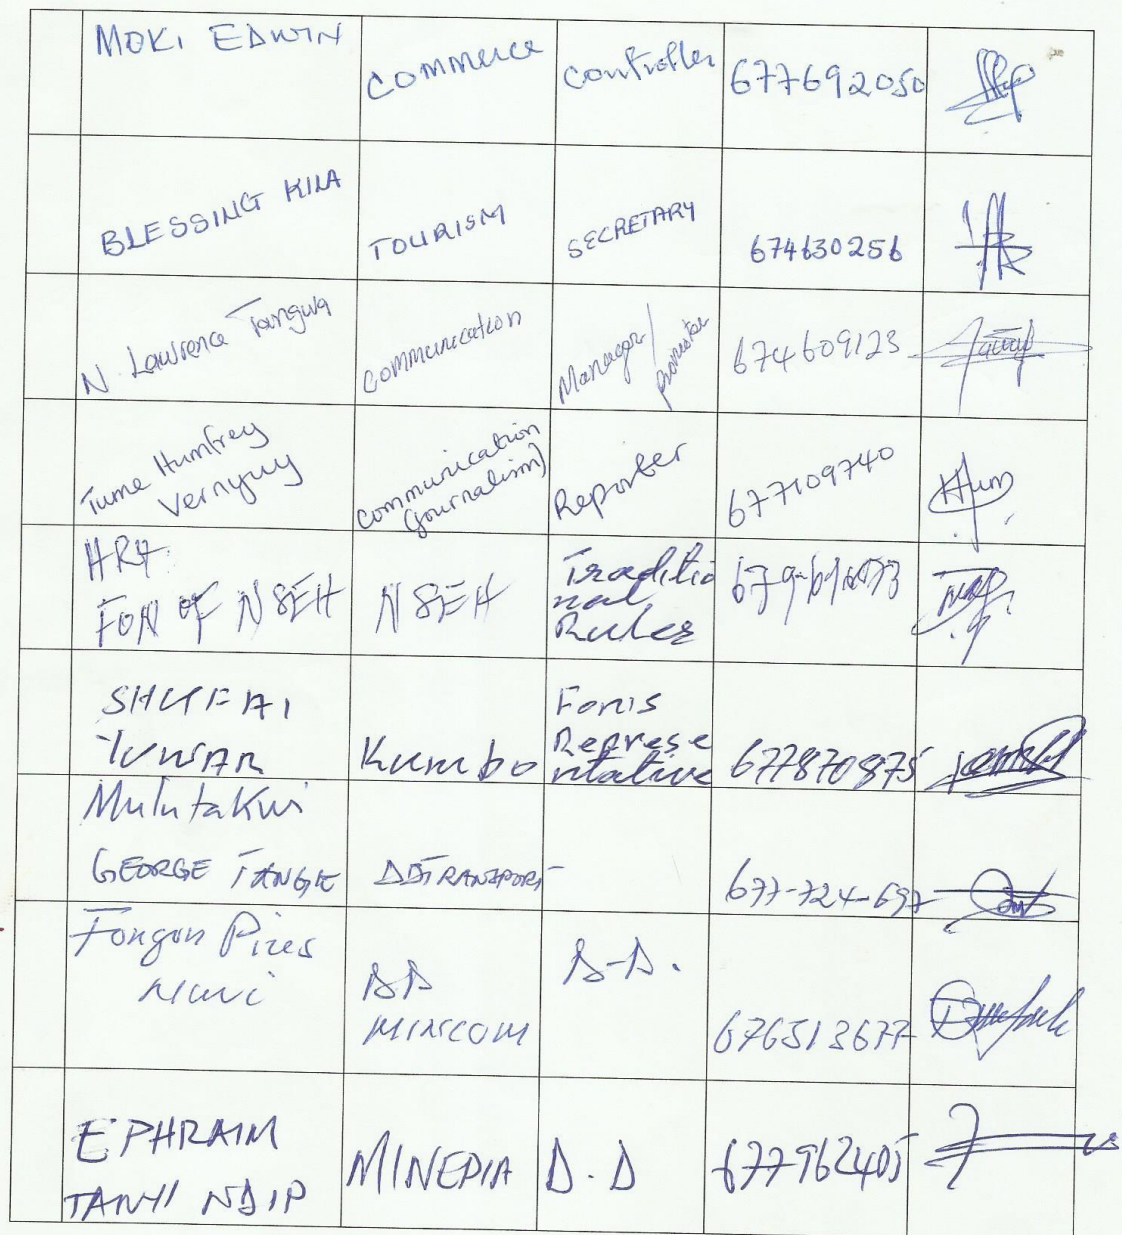 MOKI EDWIN
Commerce
Controller
677692050
BLESSING KILA
TOURISM
SECRETARY
674630256
N. Lawrence Tangwa
Communication
Manager/
promoter
674609123
Tume Humfrey
Vernyuy
Communication
(Journalism)
Reporter
677109740
HRH
FON OF NSEH
NSEH
Traditio
nal
Ruler
SHUFAI
YUWAR
Kumbo
Fon's
Represe
ntative
677870875
GEORGE TANGIE
DDTRANSPORT
677-724-697
Fongon Pires
DD
MINCOM
D-D.
676513677
EPHRAIM
TANYI NDIP
MINEPIA
D.D
677962405